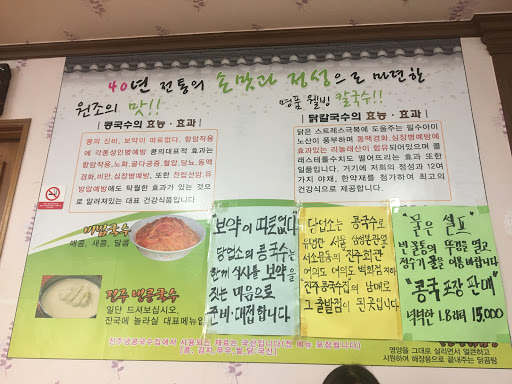 40년 전통의 손맛과 정성으로 마련한
원조의 맛!!
명품 웰빙 칼국수!!
콩국수의 효능·효과
콩의 신비, 보약이 따로없다. 항암작용
에 각종성인병예방 콩의대표적 효과는
항암작용,노화,골다공증,혈압,당뇨,동맥
경화,비만,심장병예방, 또한 전립선암,유
방암예방에도 탁월한 효과가 있는 것으
로 알려져있는 대표 건강식품입니다
닭칼국수의 효능·효과
닭은 스트레스극복에 도움주는 필수아미
노산이 풍부하며 동맥경화,심장병예방에
효과있는 리놀레산이 함유되어있으며 콜
레스테롤수치도 떨어뜨리는 효과 또한
일품입니다. 거기에 저희의 정성과 12여
가지 야채, 한약재를 첨가하여 최고의
건강식으로 제공합니다.
비빔국수
매콤, 새콤, 달콤
진주 냉콩국수
일단 드셔보십시오,
진국에 놀라실 대표메뉴입
보약이 따로없다
당업소의 콩국수는
함께 식사를 보약을
짓는 마음으로
준비·대접합니다.
당업소는 콩국수로
유명한 서울 삼성본관옆
서소문동의 진주회관
여의도 여의도 백화점 지하
진주 콩국수집의 남매로
그 출발점이 된곳입니다
"물은 셀프"
빈 물통의 뚜껑을 열고
정수기 물을 이용바랍니다
"콩국 포장 판매"
넉넉한 1.8리터 15,000
진주냉콩국수집에서 사용되는 재료는 국산입니다(전 메뉴 포장됩니다)
(콩, 김치, 무우, 쌀, 닭:국산)
영양을 그대로 살리면서 얼큰하고
시원하여 해장용으로 끝내주는 닭곰탕